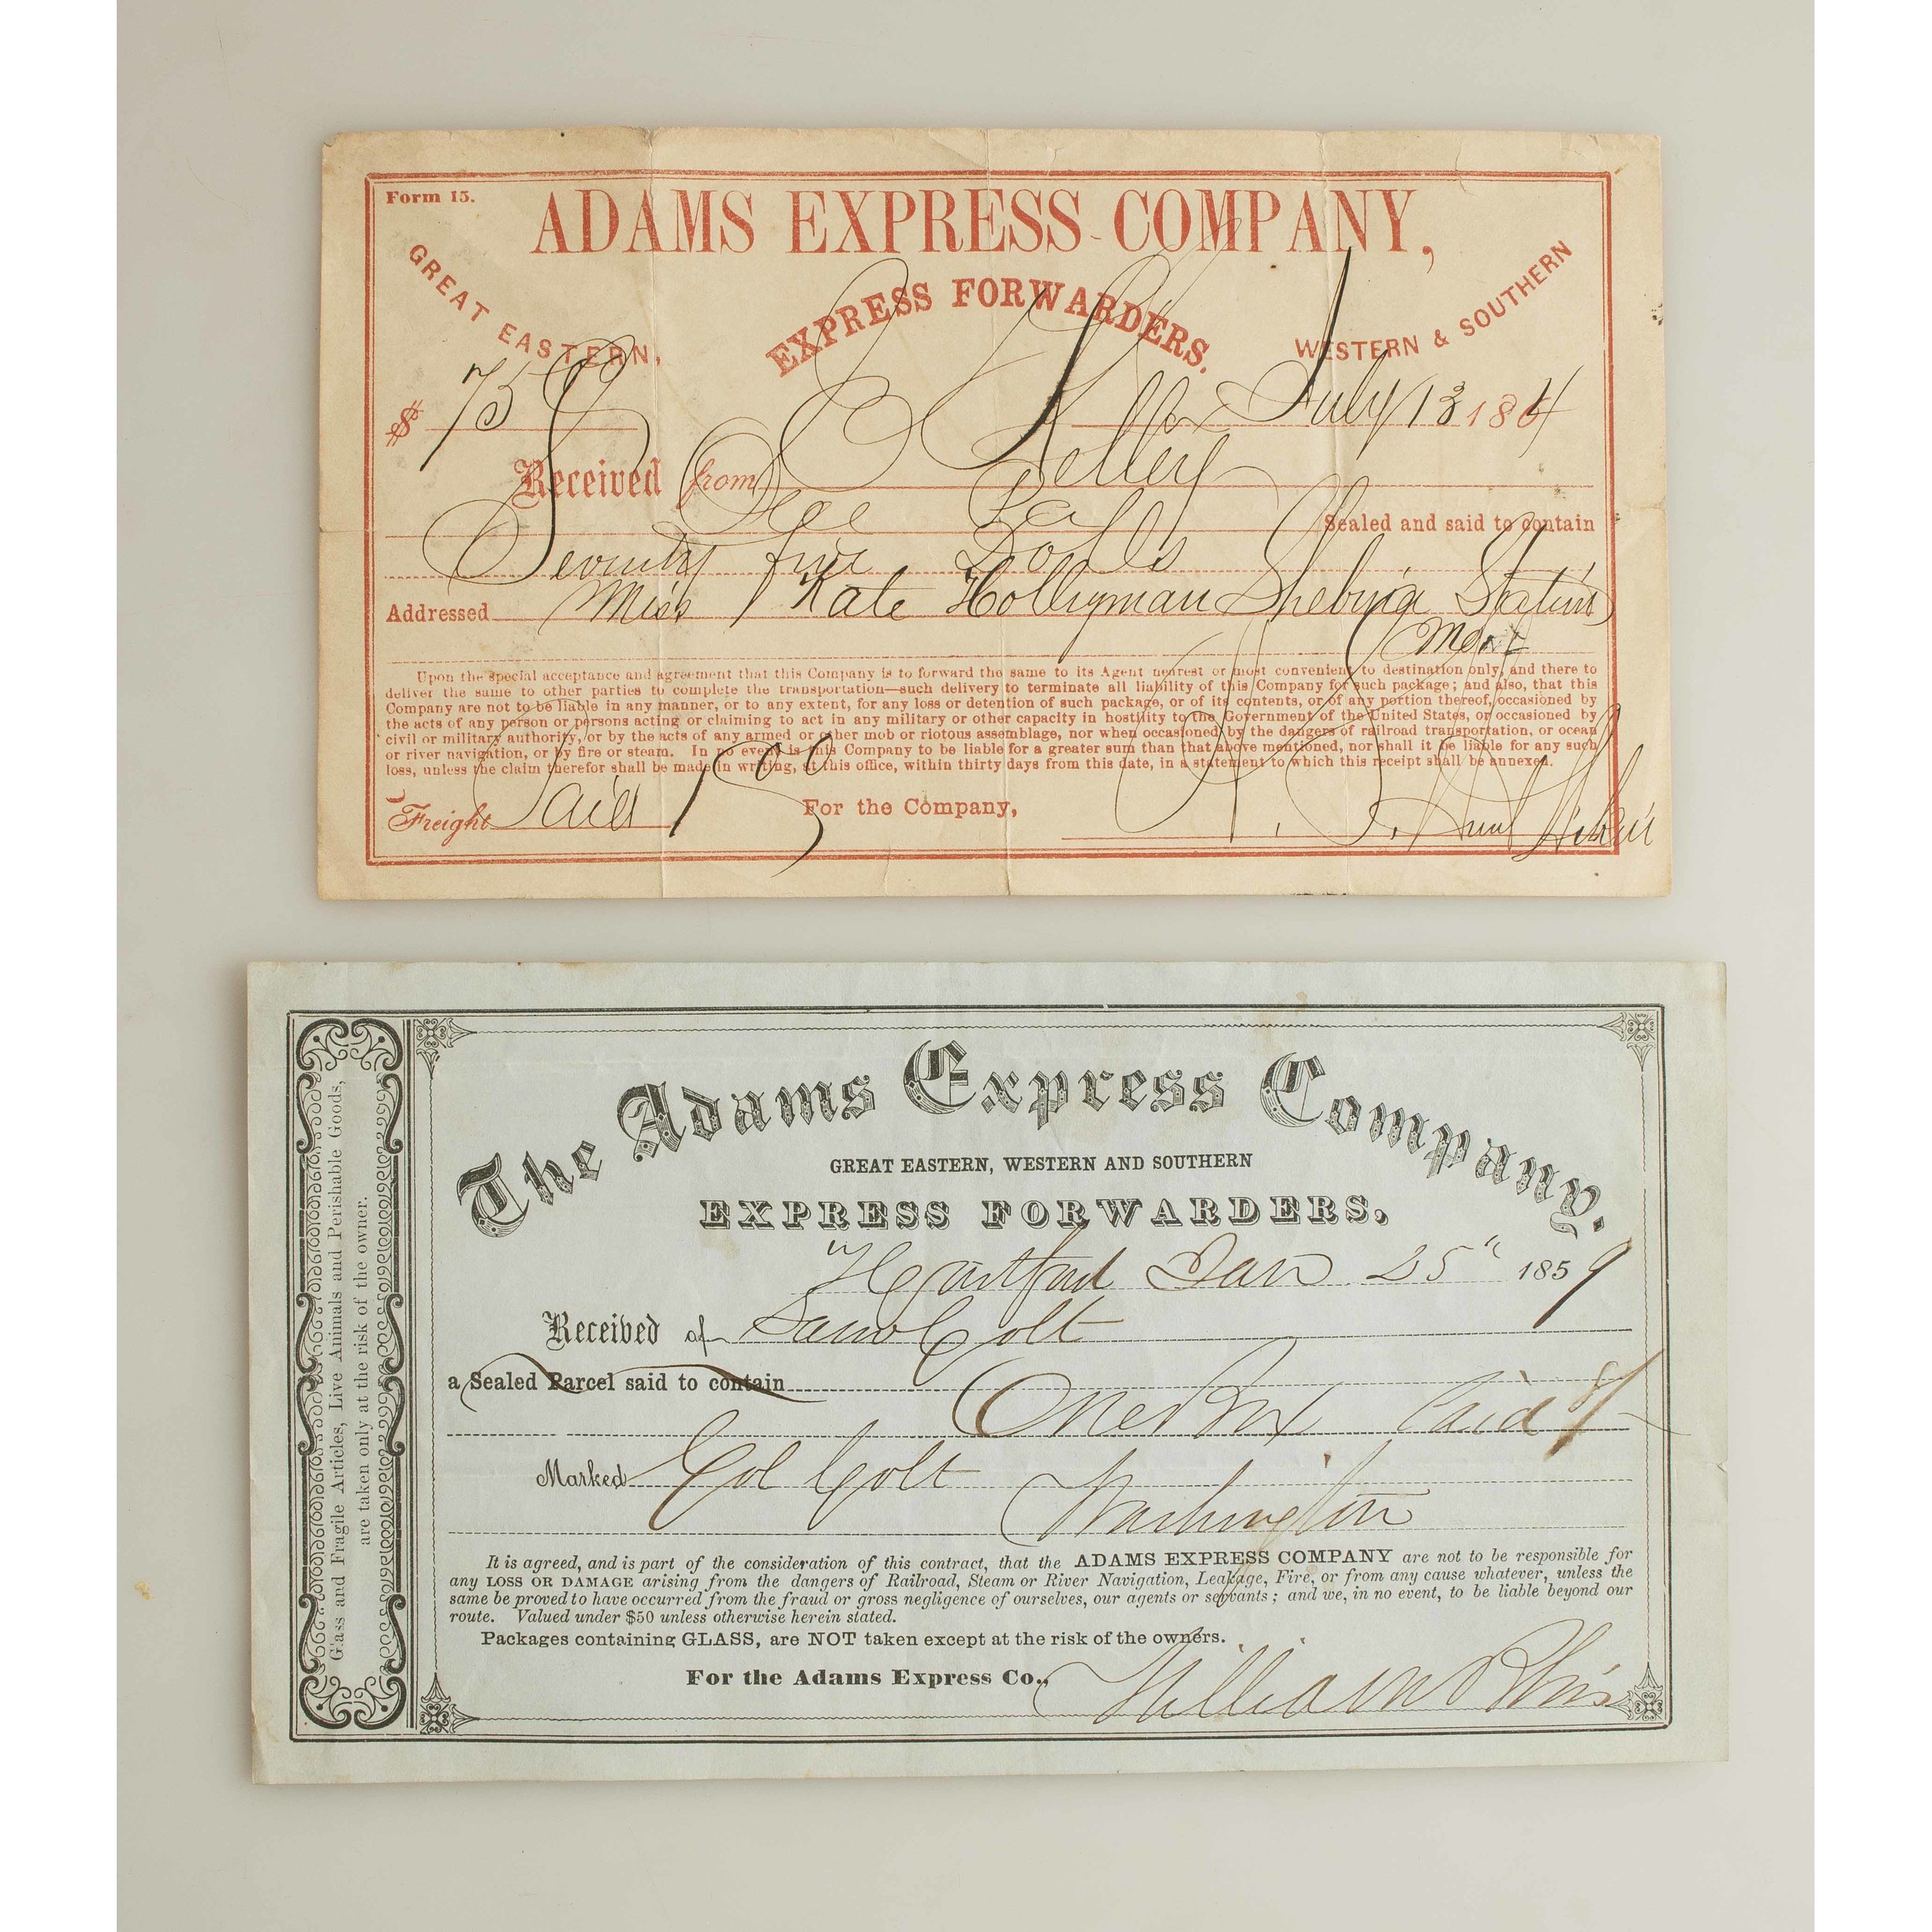 Form 15.
ADAMS EXPRESS COMPANY,
GREAT EASTERN, EXPRESS FORWARDERS. WESTERN & SOUTHERN
$ 75 July 13 1864
Received from Kelley
One Sealed and said to contain
Seventy five Dolls
Addressed Miss Kate Hollyman Shebina Station
Upon the special acceptance and agreement that this Company is to forward the same to its Agent nearest or most convenient to destination only, and there to
deliver the same to other parties to complete the transportation—such delivery to terminate all liability of this Company for such package; and also, that this
Company are not to be liable in any manner, or to any extent, for any loss or detention of such package, or of its contents, or of any portion thereof, occasioned by
the acts of any person or persons acting or claiming to act in any military or other capacity in hostility to the Government of the United States, or occasioned by
civil or military authority, or by the acts of any armed or other mob or riotous assemblage, nor when occasioned by the dangers of railroad transportation, or ocean
or river navigation, or by fire or steam. In no event is this Company to be liable for a greater sum than that above mentioned, nor shall it be liable for any such
loss, unless the claim therefor shall be made in writing, at this office, within thirty days from this date, in a statement to which this receipt shall be annexed.
Freight Paid For the Company,
Glass and Fragile Articles, Live Animals and Perishable Goods,
are taken only at the risk of the owner.
The Adams Express Company.
GREAT EASTERN, WESTERN AND SOUTHERN
EXPRESS FORWARDERS,
Hartford Jan 25" 1859
Received of Saml Colt
a Sealed Parcel said to contain
One Box Paid
Marked Col Colt
Washington
It is agreed, and is part of the consideration of this contract, that the ADAMS EXPRESS COMPANY are not to be responsible for
any LOSS OR DAMAGE arising from the dangers of Railroad, Steam or River Navigation, Leakage, Fire, or from any cause whatever, unless the
same be proved to have occurred from the fraud or gross negligence of ourselves, our agents or servants; and we, in no event, to be liable beyond our
route. Valued under $50 unless otherwise herein stated.
Packages containing GLASS, are NOT taken except at the risk of the owners.
For the Adams Express Co., William